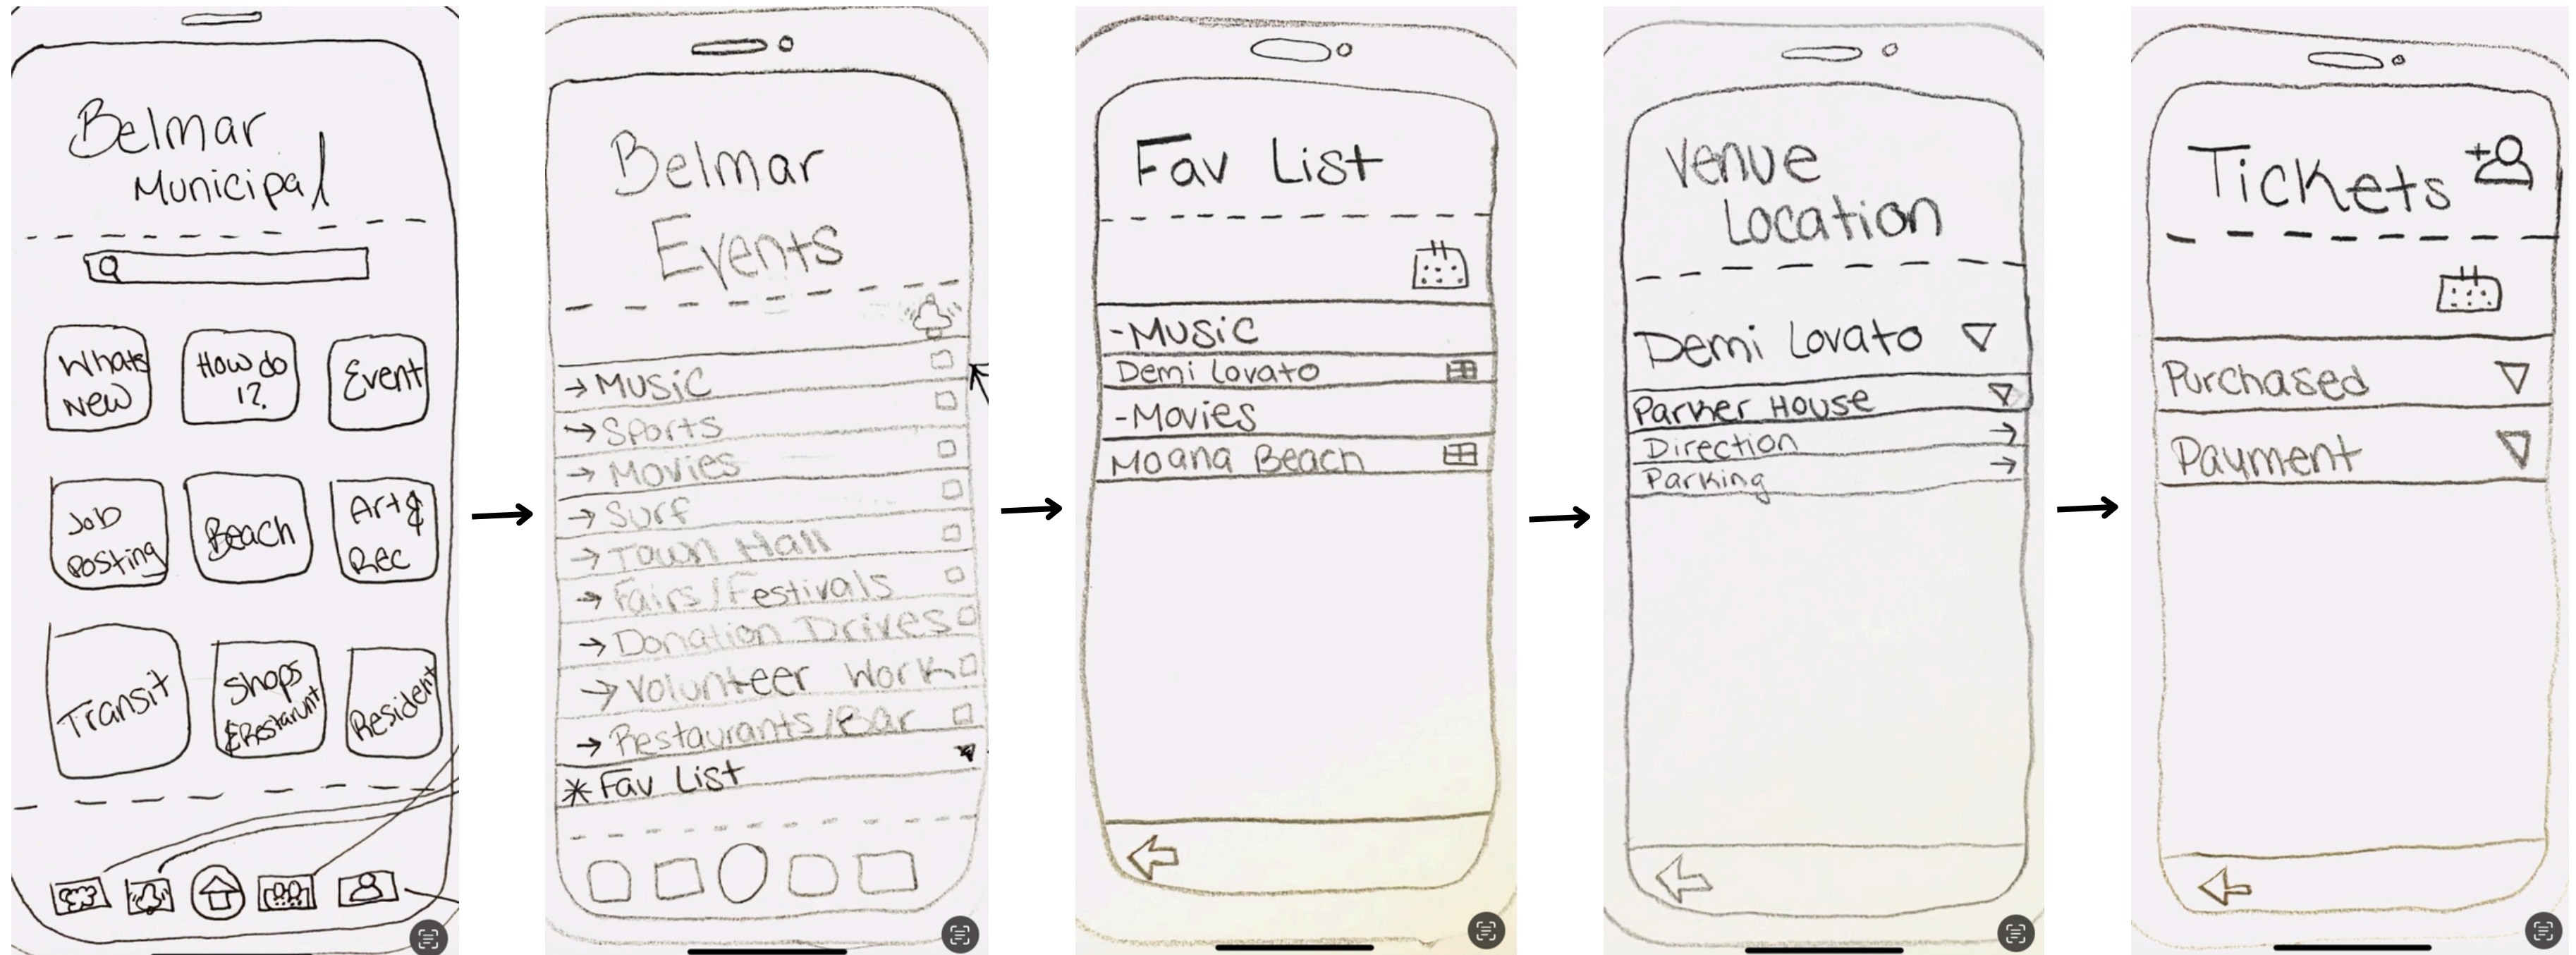 Belmar
Municipal
Whats
New
How do
I?
Event
Job
Posting
Beach
Art &
Rec
Transit
Shops
& Restarunt
Resident
Belmar
Events
→ Music
→ Sports
→ Movies
→ Surf
→ Town Hall
→ Fairs/Festivals
→ Donation Drives
→ Volunteer Work
→ Restaurants/Bar
* Fav List
Fav List
-Music
Demi Lovato
-Movies
Moana Beach
Venue
Location
Demi Lovato
Parker House
Direction
Parking
Tickets
Purchased
Payment